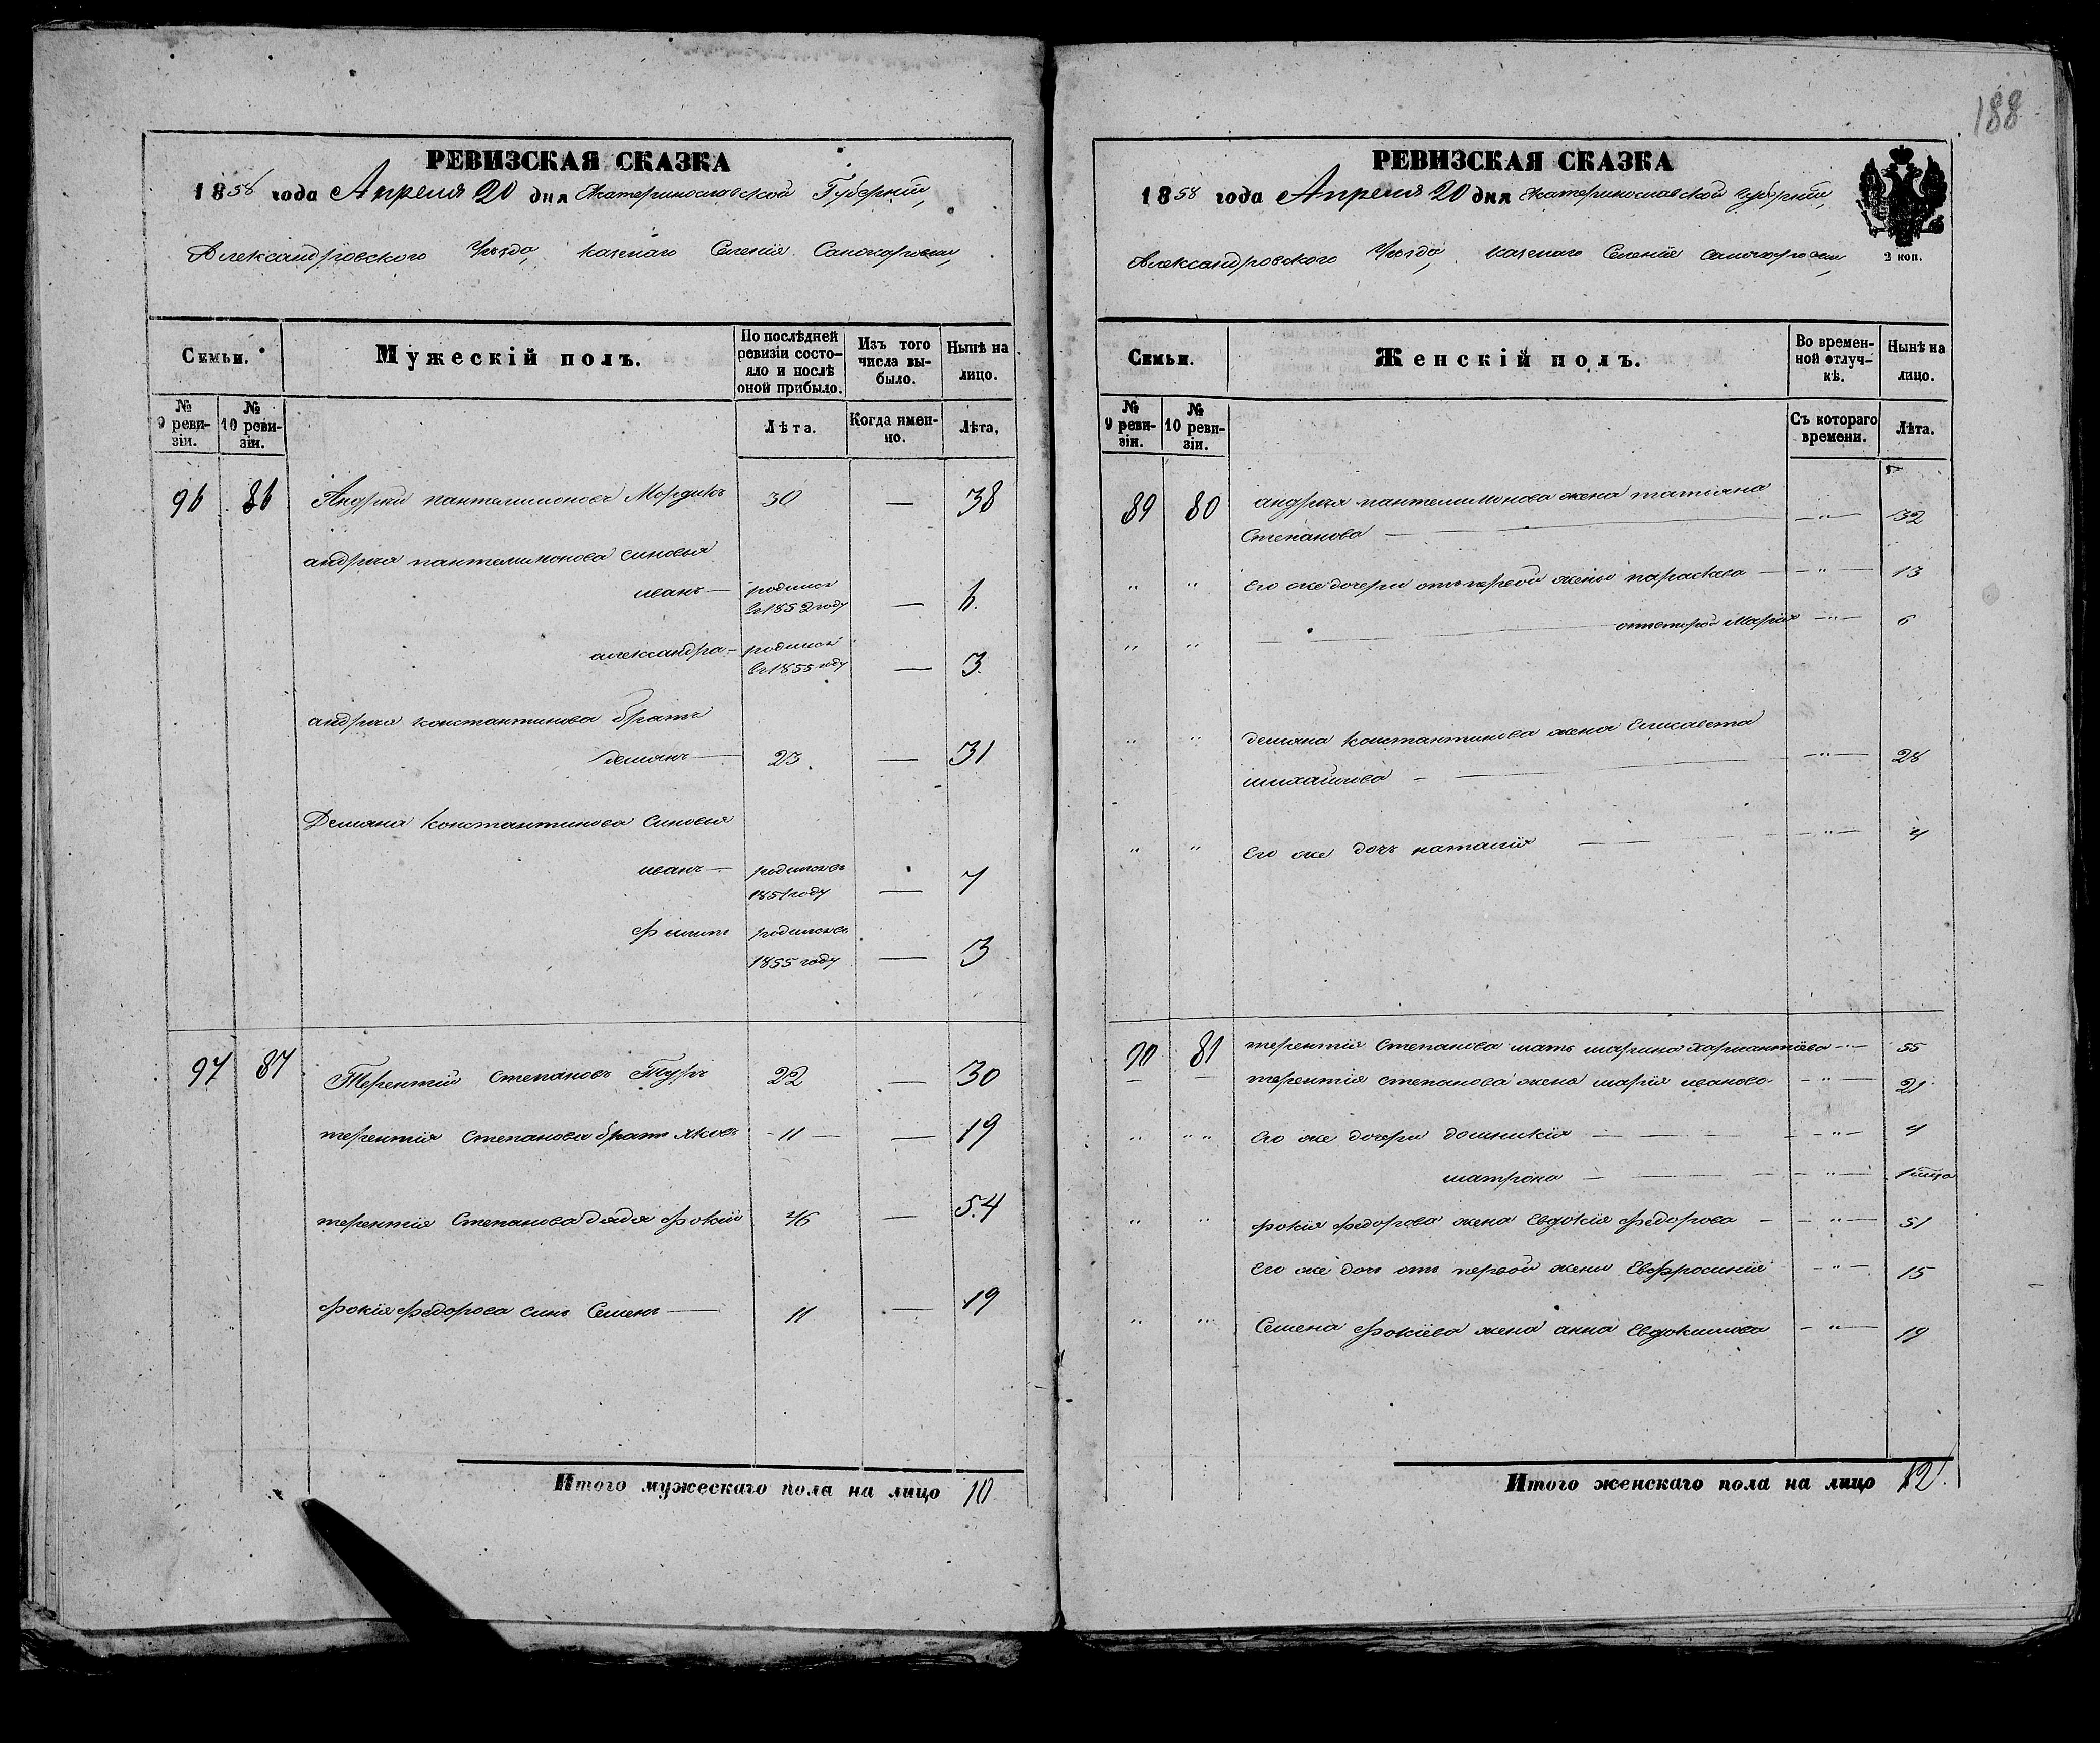 РЕВИЗСКАЯ СКАЗКА
1858 года Апреля 20 дня Екатеринославской Губернии,
Александровского Уѣзда, казенаго Селенія
Семьи.
Мужескій полъ.
По послѣдней ревизіи состояло и послѣ оной прибыло.
Изъ того числа выбыло.
Нынѣ на лицо.
№ 9 ревизіи.
№ 10 ревизіи.
Лѣта.
Когда именно.
Лѣта,
96 86 Андрей пантелимоновъ Мордикъ 30 — 38
андрея пантелимонова синовья
иванъ — родился в 1852 году — 6.
александра — родился в 1855 году — 3.
андрея константинова братъ
демянъ — 23. — 31
Демяна константинова Синовья
иванъ — родился въ 1851 году — 7
Филипъ родился въ 1855 году — 3
97 87 Терентій Степановъ Туръ 22 — 30
терентія Степанова братъ яковъ - 11 — — 19
терентія Степанова дядя фокій 46 — 54
фокія Федорова синъ Семенъ — 11 — 19
Итого мужескаго пола на лицо 10
188
РЕВИЗСКАЯ СКАЗКА
1858 года Апреля 20 дня Екатеринославской губернии,
Александровского Уѣзда, казенаго Селенія
2 коп.
Семьи.
Женскій полъ.
Во временной отлучкѣ.
Нынѣ на лицо.
№ 9 ревизіи.
№ 10 ревизіи.
Съ котораго времени.
Лѣта.
89 80 андрея пантелимонова жена татьяна
Степанова — — " — 32
" " Его же дочери отъ первой жены параскева — — " — 13
" " — отъ второй Марія — " — 6
" " демяна константинова жена Елисавета
михайлова — — " — 28
" " Его же дочъ наталія — — " — 4
90 81 терентія Степанова мать марина — " — 55
— — терентія степанова жена марія иванова. — " — 21
" " " Его же дочери домникія — — " — 4
матрона — — " — 1
" " фокія федорова жена Евдокія федорова — — " — 51
Его же дочъ отъ первой жены Евфросинія — " — 15
" " Семена фокіева жена анна Евдокимова — " — 19
Итого женскаго пола на лицо 12